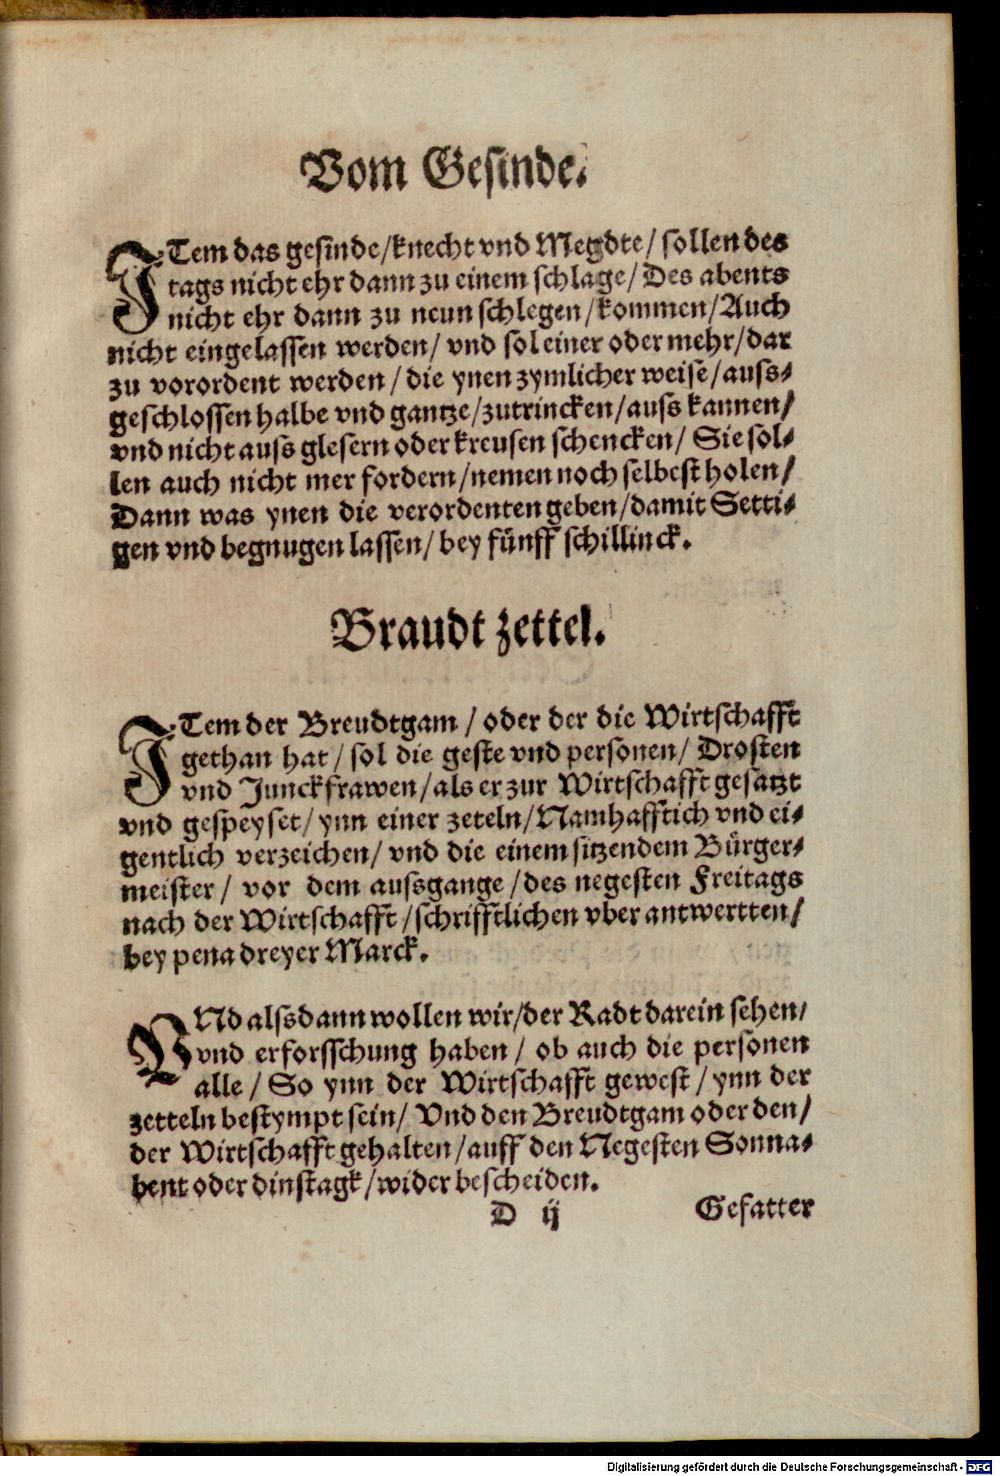 Vom Gesinde.
ITem das gesinde/knecht vnd Megdte/ sollen des
tags nicht ehr dann zu einem schlage/ Des abents
nicht ehr dann zu neun schlegen/kommen/Auch
nicht eingelassen werden/ vnd sol einer oder mehr/dar
zu vorordent werden/ die ynen zymlicher weise/auss-
geschlossen halbe vnd gantze/zutrincken/auss kannen/
vnd nicht auss glesern oder kreusen schencken/ Sie sol-
len auch nicht mer fordern/nemen noch selbest holen/
Dann was ynen die verordenten geben/damit Setti-
gen vnd begnugen lassen/ bey fünff schillinck.
Braudt zettel.
ITem der Breudtgam / oder der die Wirtschafft
gethan hat/ sol die geste vnd personen/ Drosten
vnd Junckfrawen/als er zur Wirtschafft gesatzt
vnd gespeyset/ ynn einer zeteln/Namhafftich vnd ei-
gentlich verzeichen/ vnd die einem sitzendem Bürger-
meister/ vor dem aussgange/des negesten Freitags
nach der Wirtschafft/schrifftlichen vber antwertten/
bey pena dreyer Marck.
VNd alssdann wollen wir/der Radt darein sehen/
vnd erforsschung haben/ ob auch die personen
alle/ So ynn der Wirtschafft gewest/ynn der
zetteln bestympt sein/ Vnd den Breudtgam oder den/
der Wirtschafft gehalten/auff den Negesten Sonna-
bent oder dinstagk/wider bescheiden.
D ij Gefatter
Digitalisierung gefördert durch die Deutsche Forschungsgemeinschaft - DFG